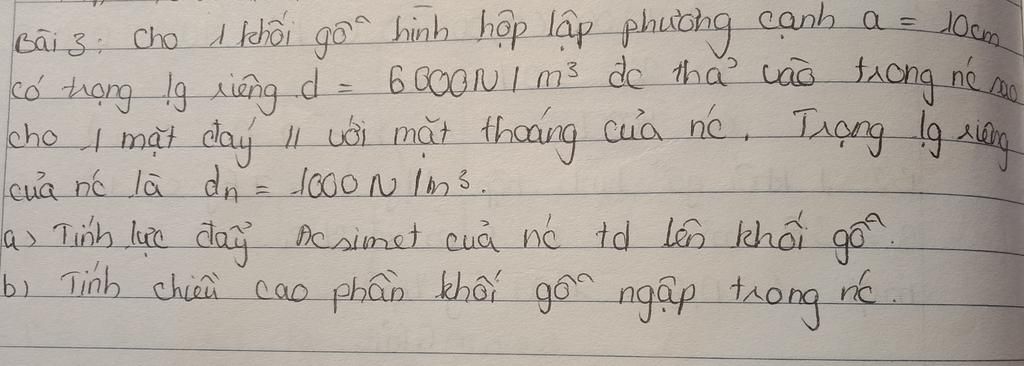 Bài 3: Cho 1 khối gỗ hình hộp lập phương cạnh a = 10cm
có trọng lg riêng d = 6000N/m³ dc thả vào trong nc sao
cho 1 mặt đáy // với mặt thoáng của nc. Trọng lg riêng
của nc là dn = 1000N/m³.
a) Tính lực đẩy Acsimet của nc td lên khối gỗ.
b) Tính chiều cao phần khối gỗ ngập trong nc.